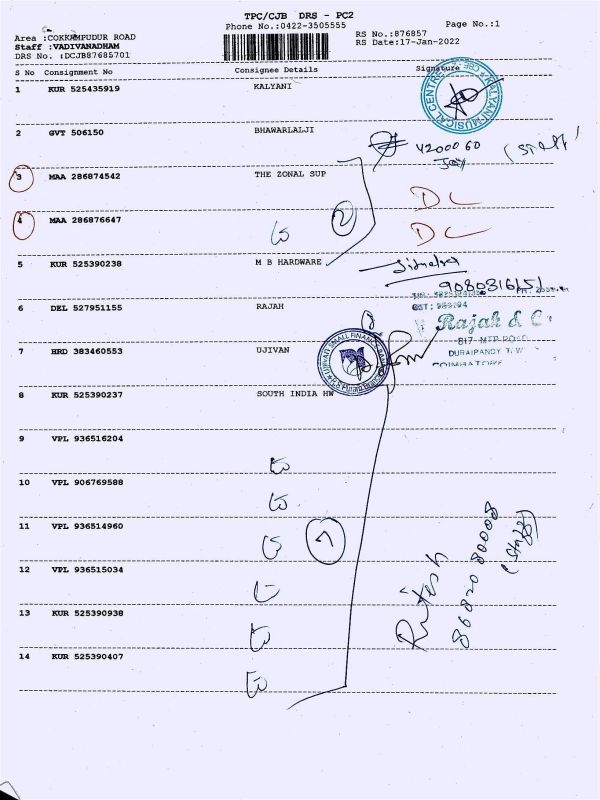 TPC/CJB DRS - PC2
Phone No.:0422-3505555
Page No.:1
Area :COKKAMPUDUR ROAD
Staff :VADIVANADHAM
DRS No. :DCJB87685701
RS No.:876857
RS Date:17-Jan-2022
S No Consignment No Consignee Details Signature
1 KUR 525435919 KALYANI
KALYANI MUSICAL CENTRE
2 GVT 506150 BHAWARLALJI
(Staff)
3 MAA 286874542 THE ZONAL SUP DC
4 MAA 286876647 DC
2
5 KUR 525390238 M B HARDWARE
6 DEL 527951155 RAJAH
Rajah & C
817- MTP ROAD
DURAIPANDY T. W
COIMBATORE
7 HRD 383460553 UJIVAN
UJJIVAN SMALL FINANCE BANK
8 KUR 525390237 SOUTH INDIA HW
9 VPL 936516204
10 VPL 906769588
11 VPL 936514960
7
12 VPL 936515034
13 KUR 525390938
14 KUR 525390407
Ritesh
86820 80008
(Staff)